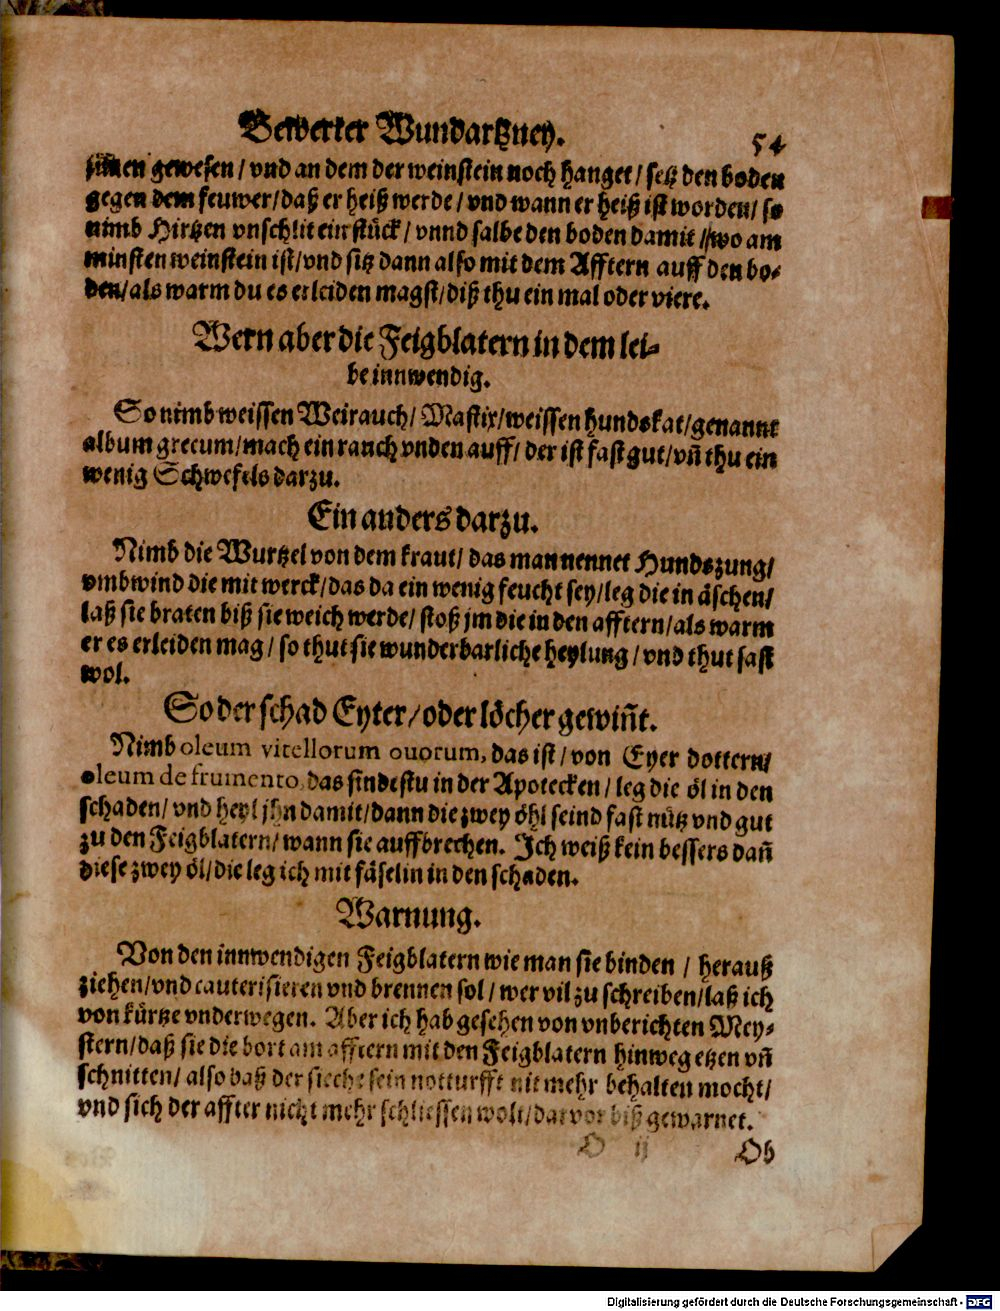 Bewerter Wundartzney. 54
sinnen gewesen / vnd an dem der weinstein noch hanget / setz den boden
gegen dem feuwer / daß er heiß werde / vnd wann er heiß ist worden / so
nimb Hirtzen vnschlit ein stück / vnnd salbe den boden damit / wo am
minsten weinstein ist / vnd sitz dann also mit dem Afftern auff den bo-
den / als warm du es erleiden magst / diß thu ein mal oder viere.
Wern aber die Feigblatern in dem lei-
be innwendig.
So nimb weissen Weirauch / Mastix / weissen hundskat / genannt
album grecum / mach ein rauch vnden auff / der ist fast gut / vñ thu ein
wenig Schwefels darzu.
Ein anders darzu.
Nimb die Wurtzel von dem kraut / das man nennet Hundszung /
vmbwind die mit werck / das da ein wenig feucht sey / leg die in äschen /
laß sie braten biß sie weich werde / stoß jm die in den afftern / als warm
er es erleiden mag / so thut sie wunderbarliche heylung / vnd thut fast
wol.
So der schad Eyter / oder löcher gewiñt.
Nimb oleum vitellorum ouorum, das ist / von Eyer dottern /
oleum de frumento, das findestu in der Apotecken / leg die öl in den
schaden / vnd heyl jhn damit / dann die zwey öhl seind fast nütz vnd gut
zu den Feigblatern / wann sie auffbrechen. Ich weiß kein bessers dañ
diese zwey öl / die leg ich mit fäselin in den schaden.
Warnung.
Von den innwendigen Feigblatern wie man sie binden / herauß
ziehen / vnd cauterisieren vnd brennen sol / wer vil zu schreiben / laß ich
von kürtze vnderwegen. Aber ich hab gesehen von vnberichten Mey-
stern / daß sie die bort am afftern mit den Feigblatern hinweg etzen vñ
schnitten / also daß der sieche sein notturfft nit mehr behalten mocht /
vnd sich der affter nicht mehr schliessen wolt / darvor biß gewarnet.
O ij Ob
Digitalisierung gefördert durch die Deutsche Forschungsgemeinschaft - DFG